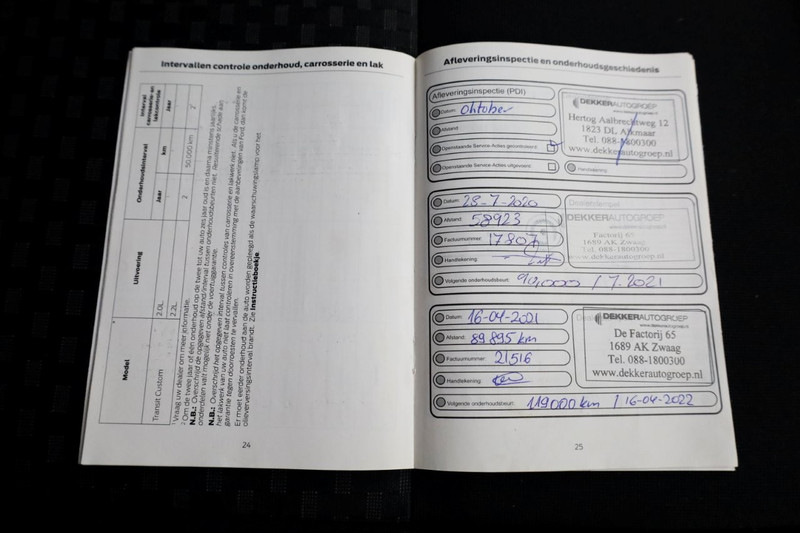 Intervallen controle onderhoud, carrosserie en lak
Model
Uitvoering
Onderhoudsinterval
Interval carrosserie- en lakcontrole
Jaar
km
Jaar
Transit Custom
2.0L
2
50.000 km
2
2.2L
¹ Vraag uw dealer om meer informatie.
² Om de twee jaar óf één onderhoud op de twee tot uw auto zes jaar oud is en daarna minstens jaarlijks.
N.B.: Overschrijd de opgegeven afstand/interval tussen onderhoudsbeurten niet. Resulterende schade aan
onderdelen valt mogelijk niet onder de voertuiggarantie.
N.B.: Overschrijd het opgegeven interval tussen controles van carrosserie en lakwerk niet. Als u de carrosserie en
het lakwerk van uw auto niet laat controleren in overeenstemming met de aanbevelingen van Ford, dan komt de
garantie tegen doorroesten te vervallen.
Er moet eerder onderhoud aan de auto worden gepleegd als de waarschuwingslamp voor het
olieverversingsinterval brandt. Zie Instructieboekje.
24
Afleveringsinspectie en onderhoudsgeschiedenis
Afleveringsinspectie (PDI)
Datum: Oktober
Afstand:
Openstaande Service-Acties gecontroleerd:
Openstaande Service-Acties uitgevoerd:
Handtekening:
DEKKERAUTOGROEP
www.dekkerautogroep.nl
Hertog Aalbrechtweg 12
1823 DL Alkmaar
Tel. 088-1800300
www.dekkerautogroep.nl
Datum: 28-7-2020
Afstand: 58923
Factuurnummer: 17807
Handtekening:
Volgende onderhoudsbeurt: 90,000 / 7.2021
Dealerstempel
DEKKERAUTOGROEP
Factorij 65
1689 AK Zwaag
Tel. 088-1800300
www.dekkerautogroep.nl
Datum: 16-04-2021
Afstand: 89.895 km
Factuurnummer: 21,516
Handtekening:
Volgende onderhoudsbeurt: 119000 km / 16-04-2022
DEKKERAUTOGROEP
www.dekkerautogroep.nl
De Factorij 65
1689 AK Zwaag
Tel. 088-1800300
www.dekkerautogroep.nl
25